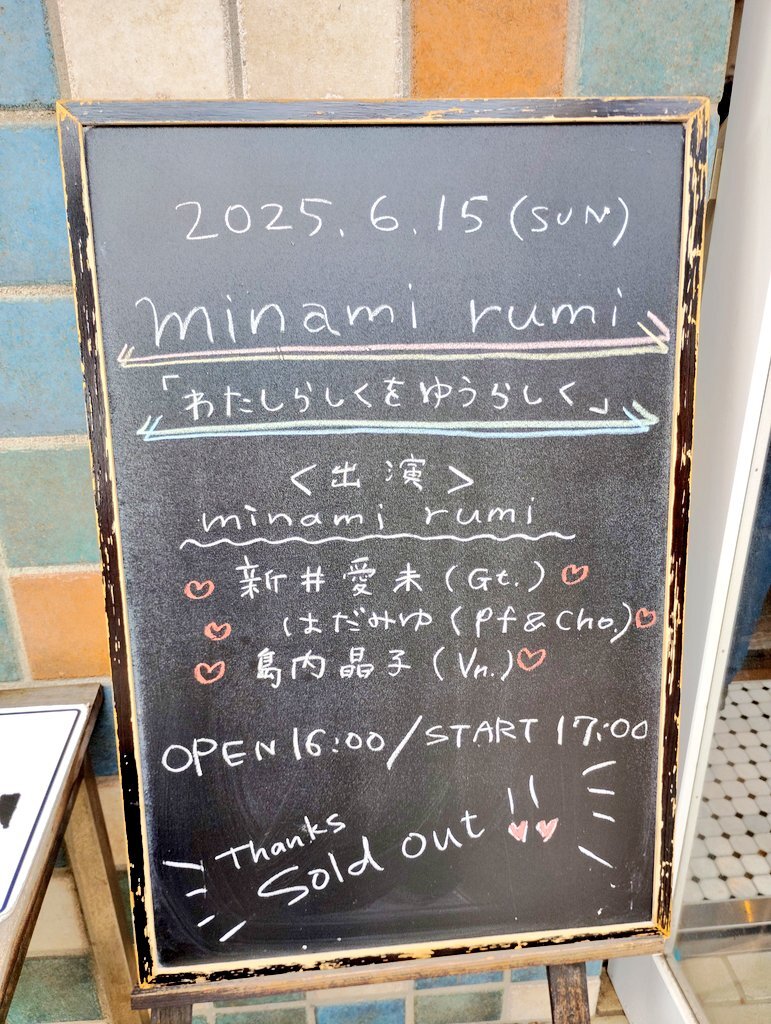 2025. 6. 15 (SUN)
minami rumi
「わたしらしくをゆうらしく」
＜出演＞
minami rumi
新井愛未 (Gt.)
はだみゆ (Pf & Cho.)
島内晶子 (Vn.)
OPEN 16:00 / START 17:00
Thanks
Sold out !!